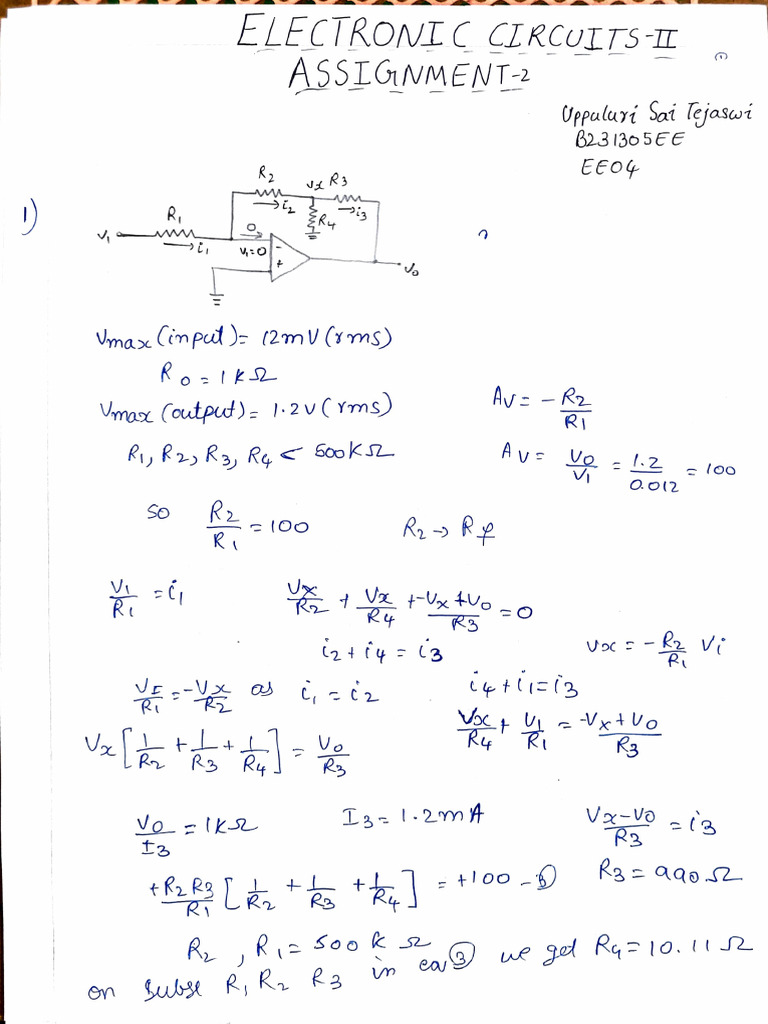 ELECTRONIC CIRCUITS-II
ASSIGNMENT-2
Uppuluri Sai Tejaswi
B231305EE
EE04
1)
R2 Vx R3
R1 i2 R4 i3
V1 i1 0 V1=0 - + Vo
Vmax (input) = 12mV (rms)
Ro = 1kΩ
Vmax (output) = 1.2V (rms)
Av = -R2/R1
R1, R2, R3, R4 < 500kΩ
Av = Vo/Vi = 1.2/0.012 = 100
so R2/R1 = 100 R2 → Rf
V1/R1 = i1 Vx/R2 + Vx/R4 + -Vx+Vo/R3 = 0
i2 + i4 = i3 Vx = -R2/R1 Vi
VI/R1 = -Vx/R2 as i1 = i2 i4 + i1 = i3
Vx/R4 + V1/R1 = -Vx+Vo/R3
Vx [1/R2 + 1/R3 + 1/R4] = Vo/R3
Vo/I3 = 1kΩ I3 = 1.2mA Vx-Vo/R3 = i3
+R2R3/R1 [1/R2 + 1/R3 + 1/R4] = +100 -③ R3 = 990Ω
R2, R1 = 500kΩ
on subse R1 R2 R3 in eq③ we get R4 = 10.11Ω